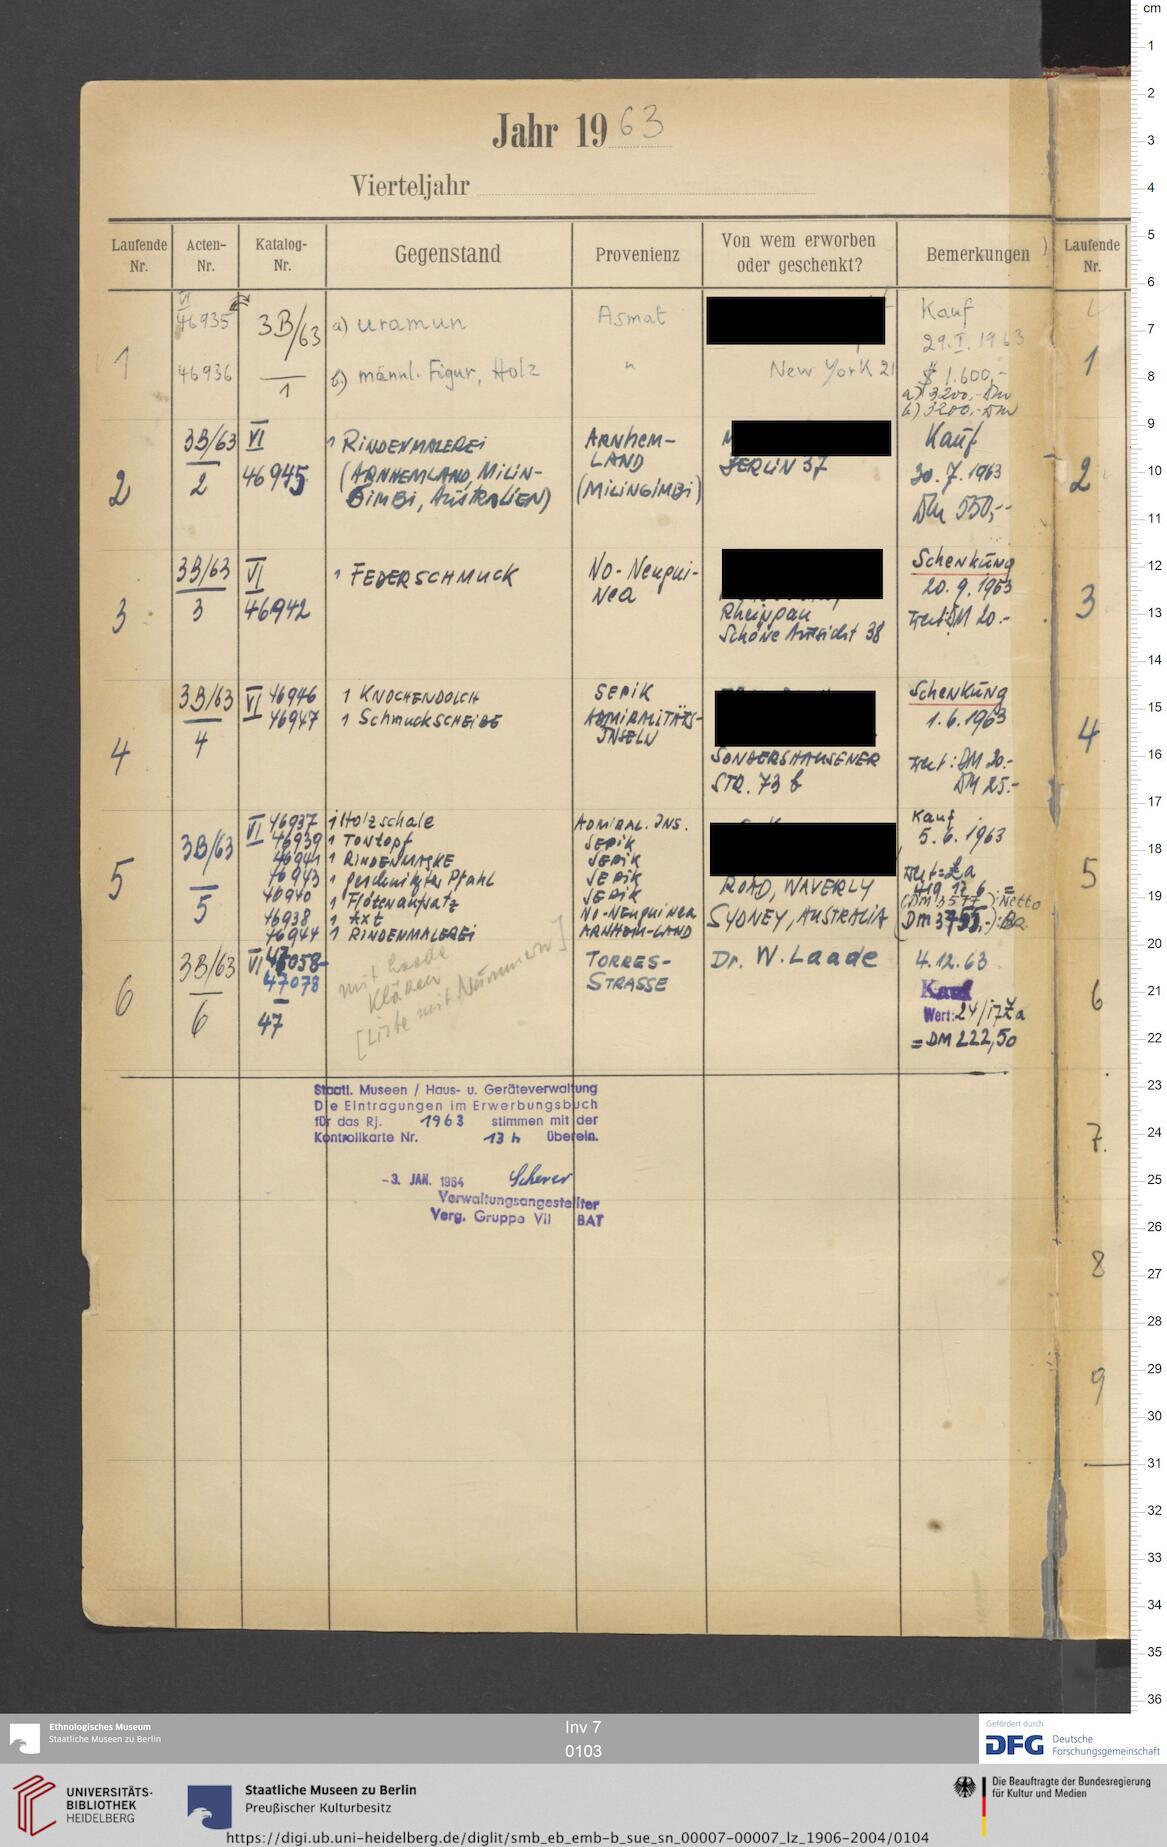 Jahr 1963
Vierteljahr
Laufende Nr.
Acten-Nr.
Katalog-Nr.
Gegenstand
Provenienz
Von wem erworben oder geschenkt?
Bemerkungen
Laufende Nr.
1
VI
46935
46936
3B/63
1
a) uramun
b) männl. Figur, Holz
Asmat
"
New York 21
Kauf
29.I.1963
$ 1.600,-
a) 3200,- DM
b) 3200,- DM
1
2
3B/63
2
VI
46945
1 RINDENMALEREI
(ARNHEMLAND, MILIN-
GIMBI, AUSTRALIEN)
ARNHEM-
LAND
(MILINGIMBI)
BERLIN 37
Kauf
30.7.1963
DM 550,--
2
3
3B/63
3
VI
46942
1 FEDERSCHMUCK
NO-Neugui-
nea
Rheingau
Schöne Aussicht 38
Schenkung
20.9.1963
Wert: DM 20.-
3
4
3B/63
4
VI 46946
VI 46947
1 KNOCHENDOLCH
1 Schmuckscheibe
SEPIK
ADMIRALITÄTS-
INSELN
SONDERSHAUSENER
STR. 73 b
Schenkung
1.6.1963
Wert: DM 20.-
DM 25.-
4
5
3B/63
5
VI 46937
46939
46941
46943
46940
46938
46944
1 Holzschale
1 Tontopf
1 RINDENMASKE
1 geschnitzter Pfahl
1 Flötenaufsatz
1 Axt
1 RINDENMALEREI
ADMIRAL. INS.
SEPIK
SEPIK
SEPIK
SEPIK
NO-Neuguinea
ARNHEM-LAND
ROAD, WAVERLY
SYDNEY, AUSTRALIA
Kauf
5.6.1963
Wert: £a
419.17.6 =
(DM 3577 ): Netto
5
6
3B/63
6
VI 47058-
47078
47
mit Laade
klären
[Liste mit Nummern]
TORRES-
STRASSE
Dr. W. Laade
4.12.63
Kauf
Wert: 24/17 £a
= DM 222,50
6
Staatl. Museen / Haus- u. Geräteverwaltung
Die Eintragungen im Erwerbungsbuch
für das Rj. 1963 stimmen mit der
Kontrollkarte Nr. 13 h überein.
-3. JAN. 1964 Scherer
Verwaltungsangestellter
Verg. Gruppe VII BAT
7.
8
9
cm
1
2
3
4
5
6
7
8
9
10
11
12
13
14
15
16
17
18
19
20
21
22
23
24
25
26
27
28
29
30
31
32
33
34
35
36
Ethnologisches Museum
Staatliche Museen zu Berlin
Inv 7
0103
Gefördert durch
DFG Deutsche
Forschungsgemeinschaft
UNIVERSITÄTS-
BIBLIOTHEK
HEIDELBERG
Staatliche Museen zu Berlin
Preußischer Kulturbesitz
Die Beauftragte der Bundesregierung
für Kultur und Medien
https://digi.ub.uni-heidelberg.de/diglit/smb_eb_emb-b_sue_sn_00007-00007_lz_1906-2004/0104